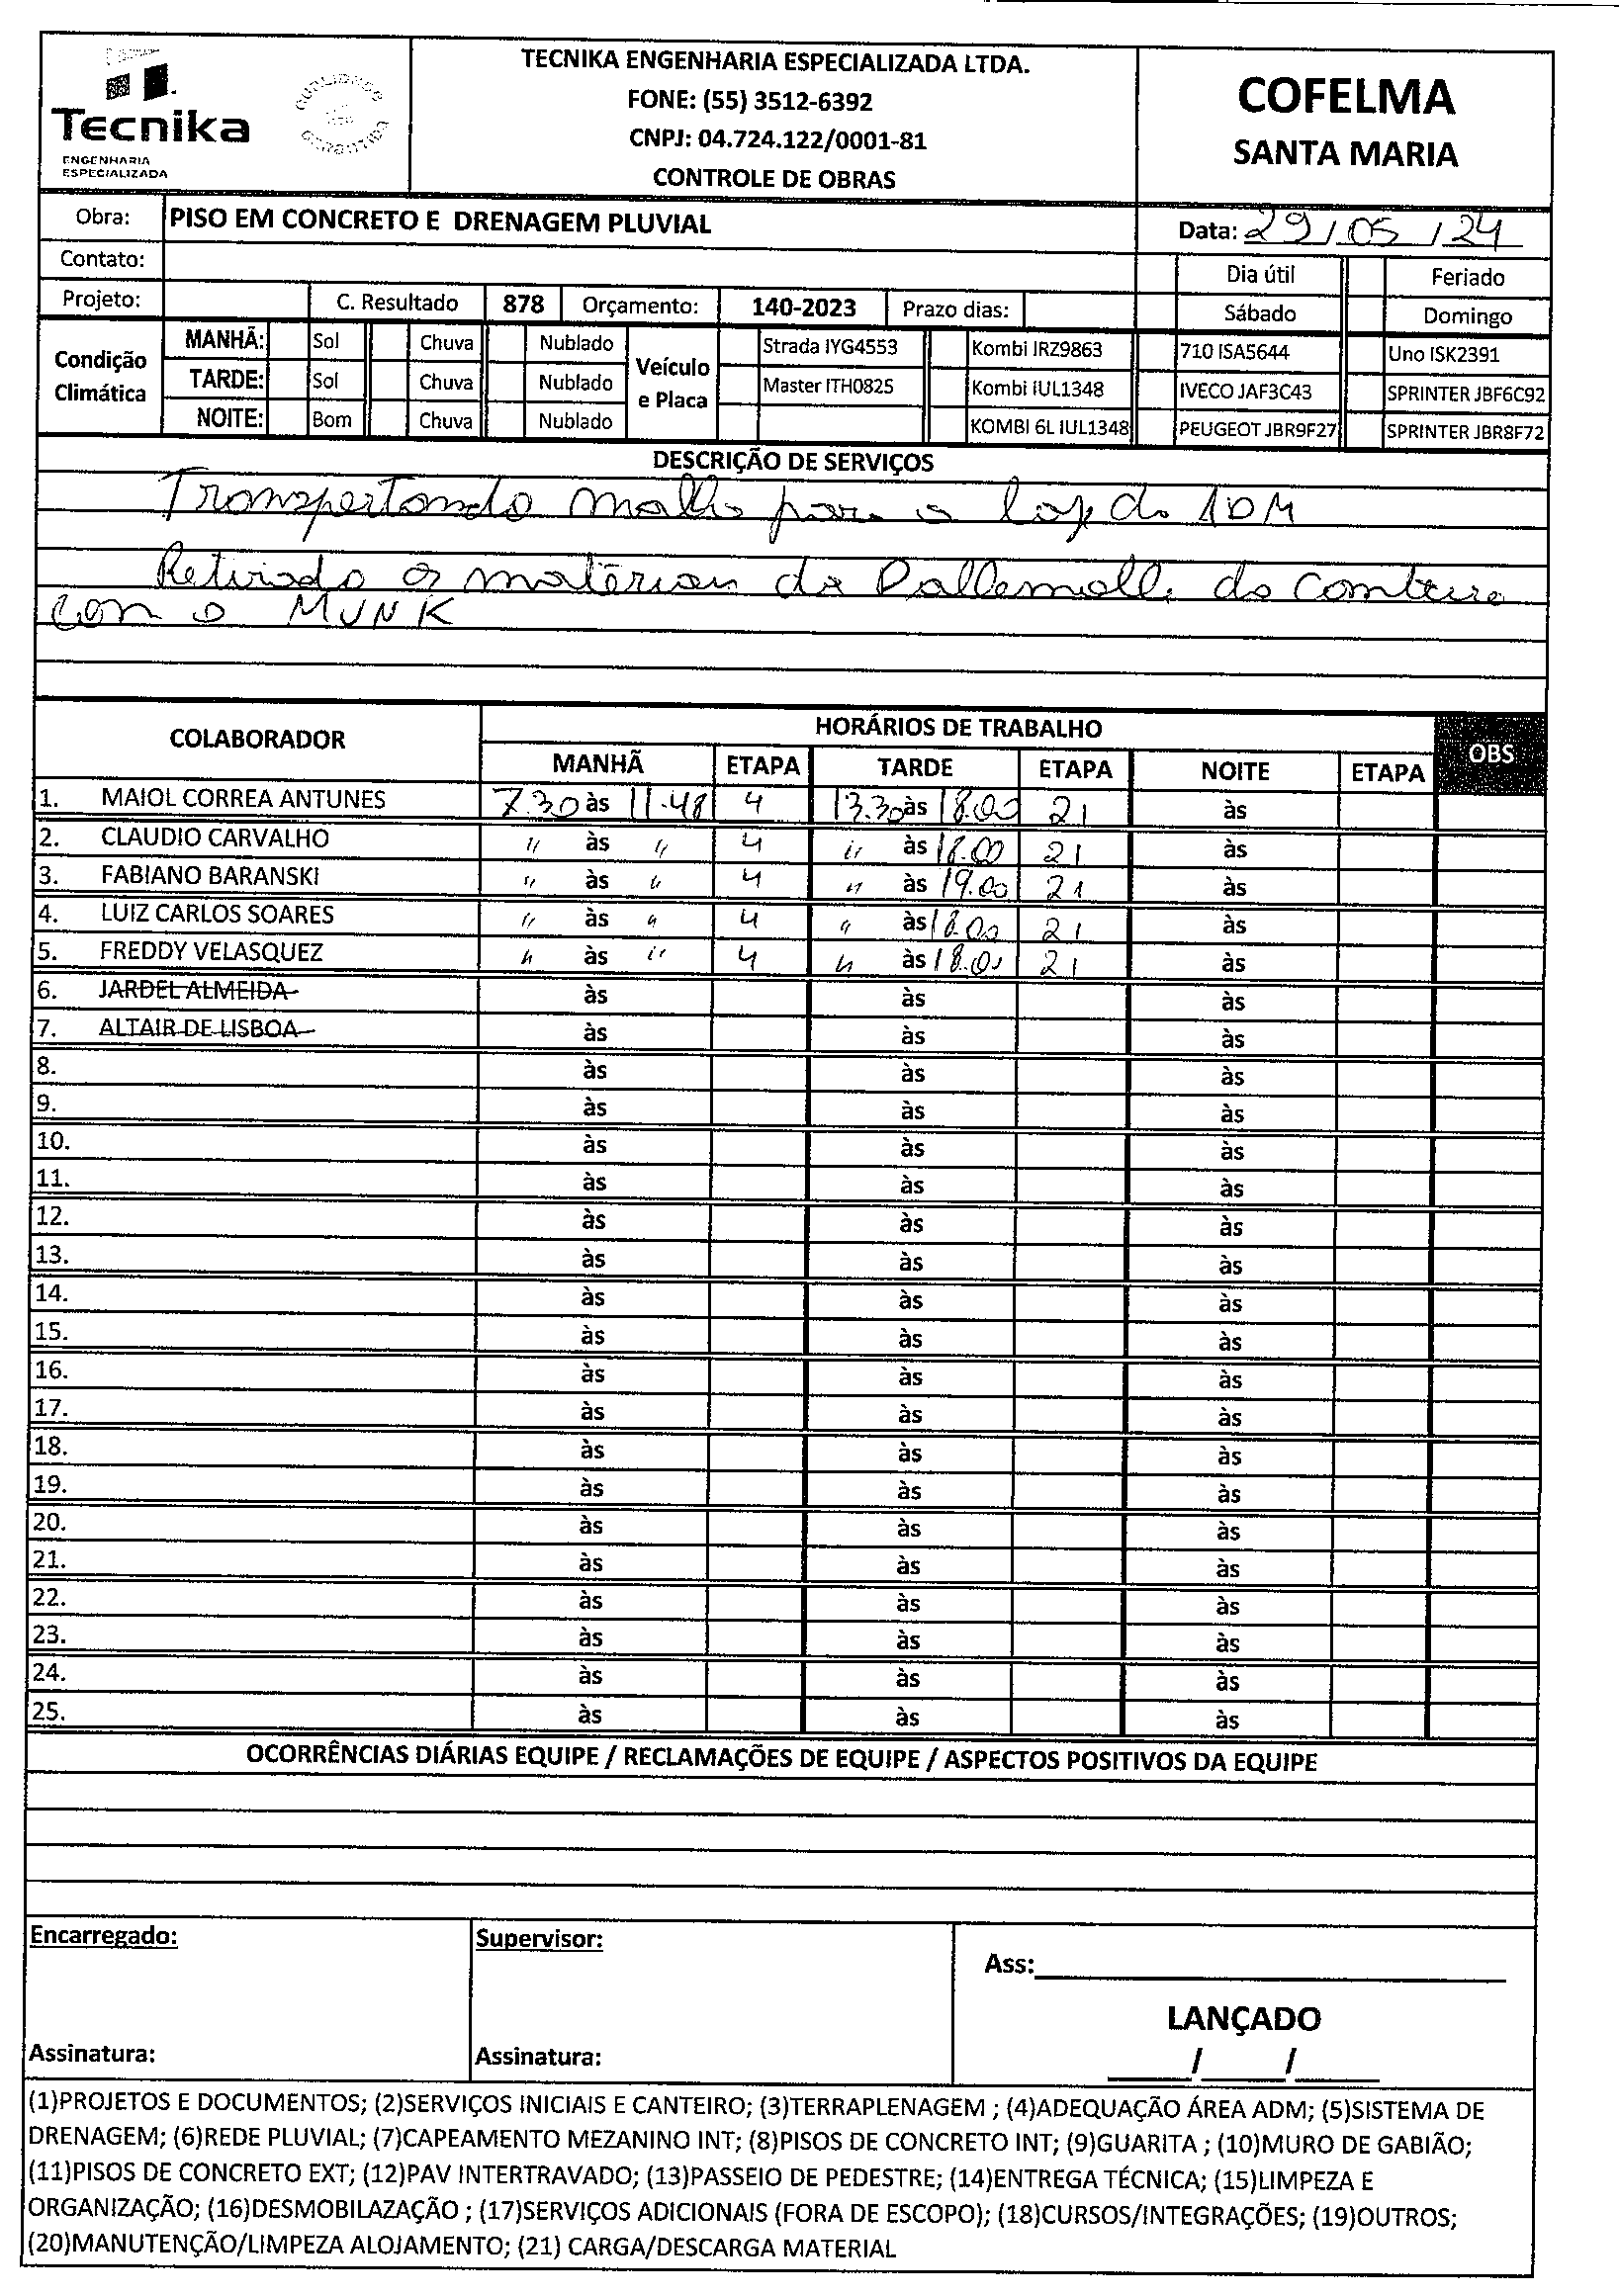 Tecnika
ENGENHARIA
ESPECIALIZADA
TECNIKA ENGENHARIA ESPECIALIZADA LTDA.
FONE: (55) 3512-6392
CNPJ: 04.724.122/0001-81
CONTROLE DE OBRAS
COFELMA
SANTA MARIA
Obra: PISO EM CONCRETO E DRENAGEM PLUVIAL
Data: 29/05/24
Contato:
Dia útil Feriado
Projeto: C. Resultado 878 Orçamento: 140-2023 Prazo dias:
Sábado Domingo
Condição Climática
MANHÃ: Sol Chuva Nublado
TARDE: Sol Chuva Nublado
NOITE: Bom Chuva Nublado
Veículo e Placa
Strada IYG4553 Kombi IRZ9863 710 ISA5644 Uno ISK2391
Master ITH0825 Kombi IUL1348 IVECO JAF3C43 SPRINTER JBF6C92
KOMBI 6L IUL1348 PEUGEOT JBR9F27 SPRINTER JBR8F72
DESCRIÇÃO DE SERVIÇOS
Transportando malha para a do
Retirado o da do
com o MUNK
COLABORADOR HORÁRIOS DE TRABALHO OBS
MANHÃ ETAPA TARDE ETAPA NOITE ETAPA
1. MAIOL CORREA ANTUNES 7.30 às 11.48 4 13.30 às 18.00 21 às
2. CLAUDIO CARVALHO " às " 4 " às 18.00 21 às
3. FABIANO BARANSKI " às " 4 " às 19.00 21 às
4. LUIZ CARLOS SOARES " às " 4 " às 18.00 21 às
5. FREDDY VELASQUEZ " às " 4 " às 18.00 21 às
6. JARDEL ALMEIDA às às às
7. ALTAIR DE LISBOA às às às
8. às às às
9. às às às
10. às às às
11. às às às
12. às às às
13. às às às
14. às às às
15. às às às
16. às às às
17. às às às
18. às às às
19. às às às
20. às às às
21. às às às
22. às às às
23. às às às
24. às às às
25. às às às
OCORRÊNCIAS DIÁRIAS EQUIPE / RECLAMAÇÕES DE EQUIPE / ASPECTOS POSITIVOS DA EQUIPE
Encarregado: Supervisor:
Ass:
LANÇADO
Assinatura: Assinatura:
___/___/___
(1)PROJETOS E DOCUMENTOS; (2)SERVIÇOS INICIAIS E CANTEIRO; (3)TERRAPLENAGEM ; (4)ADEQUAÇÃO ÁREA ADM; (5)SISTEMA DE
DRENAGEM; (6)REDE PLUVIAL; (7)CAPEAMENTO MEZANINO INT; (8)PISOS DE CONCRETO INT; (9)GUARITA ; (10)MURO DE GABIÃO;
(11)PISOS DE CONCRETO EXT; (12)PAV INTERTRAVADO; (13)PASSEIO DE PEDESTRE; (14)ENTREGA TÉCNICA; (15)LIMPEZA E
ORGANIZAÇÃO; (16)DESMOBILAZAÇÃO ; (17)SERVIÇOS ADICIONAIS (FORA DE ESCOPO); (18)CURSOS/INTEGRAÇÕES; (19)OUTROS;
(20)MANUTENÇÃO/LIMPEZA ALOJAMENTO; (21) CARGA/DESCARGA MATERIAL